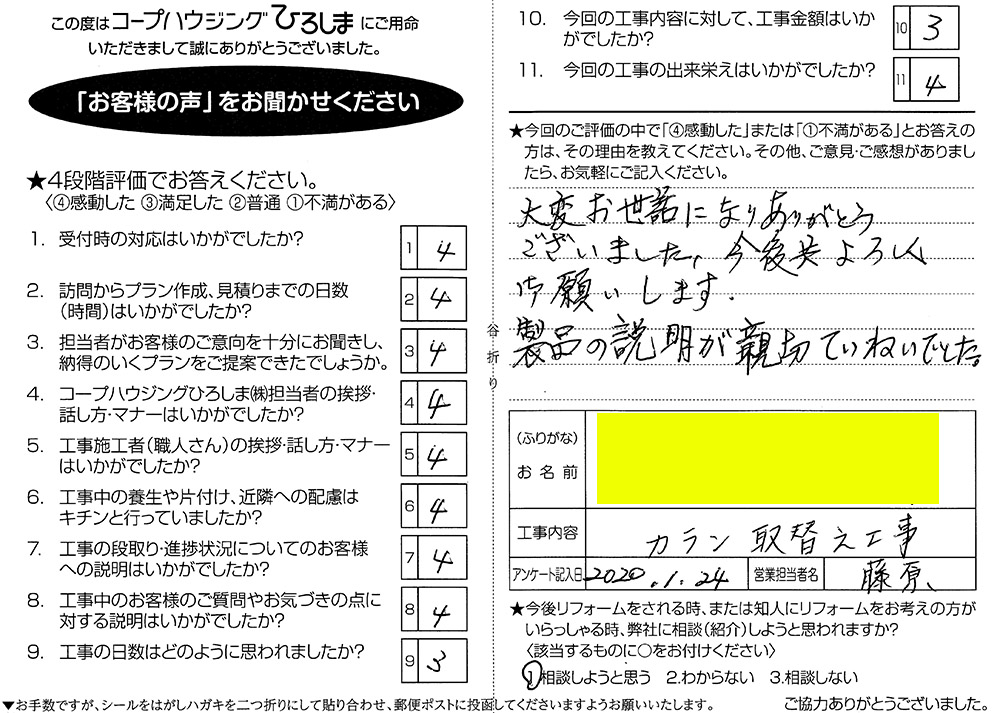 この度はコープハウジングひろしまにご用命
いただきまして誠にありがとうございました。
「お客様の声」をお聞かせください
★4段階評価でお答えください。
〈④感動した ③満足した ②普通 ①不満がある〉
1. 受付時の対応はいかがでしたか？
1 4
2. 訪問からプラン作成、見積りまでの日数
（時間）はいかがでしたか？
2 4
3. 担当者がお客様のご意向を十分にお聞きし、
納得のいくプランをご提案できたでしょうか。
3 4
4. コープハウジングひろしま㈱担当者の挨拶・
話し方・マナーはいかがでしたか？
4 4
5. 工事施工者（職人さん）の挨拶・話し方・マナー
はいかがでしたか？
5 4
6. 工事中の養生や片付け、近隣への配慮は
キチンと行っていましたか？
6 4
7. 工事の段取り・進捗状況についてのお客様
への説明はいかがでしたか？
7 4
8. 工事中のお客様のご質問やお気づきの点に
対する説明はいかがでしたか？
8 4
9. 工事の日数はどのように思われましたか？
9 3
▼お手数ですが、シールをはがしハガキを二つ折りにして貼り合わせ、郵便ポストに投函してくださいますようお願いいたします。
谷折り
10. 今回の工事内容に対して、工事金額はいか
がでしたか？
10 3
11. 今回の工事の出来栄えはいかがでしたか？
11 4
★今回のご評価の中で「④感動した」または「①不満がある」とお答えの
方は、その理由を教えてください。その他、ご意見・ご感想がありまし
たら、お気軽にご記入ください。
大変お世話になりありがとう
ございました、今後共よろしく
御願いします.
製品の説明が親切ていねいでした。
（ふりがな）
お名前
工事内容 カラン取替え工事
アンケート記入日 2020.1.24 営業担当者名 藤原
★今後リフォームをされる時、または知人にリフォームをお考えの方が
いらっしゃる時、弊社に相談（紹介）しようと思われますか？
〈該当するものに○をお付けください〉
1.相談しようと思う 2.わからない 3.相談しない
ご協力ありがとうございました。